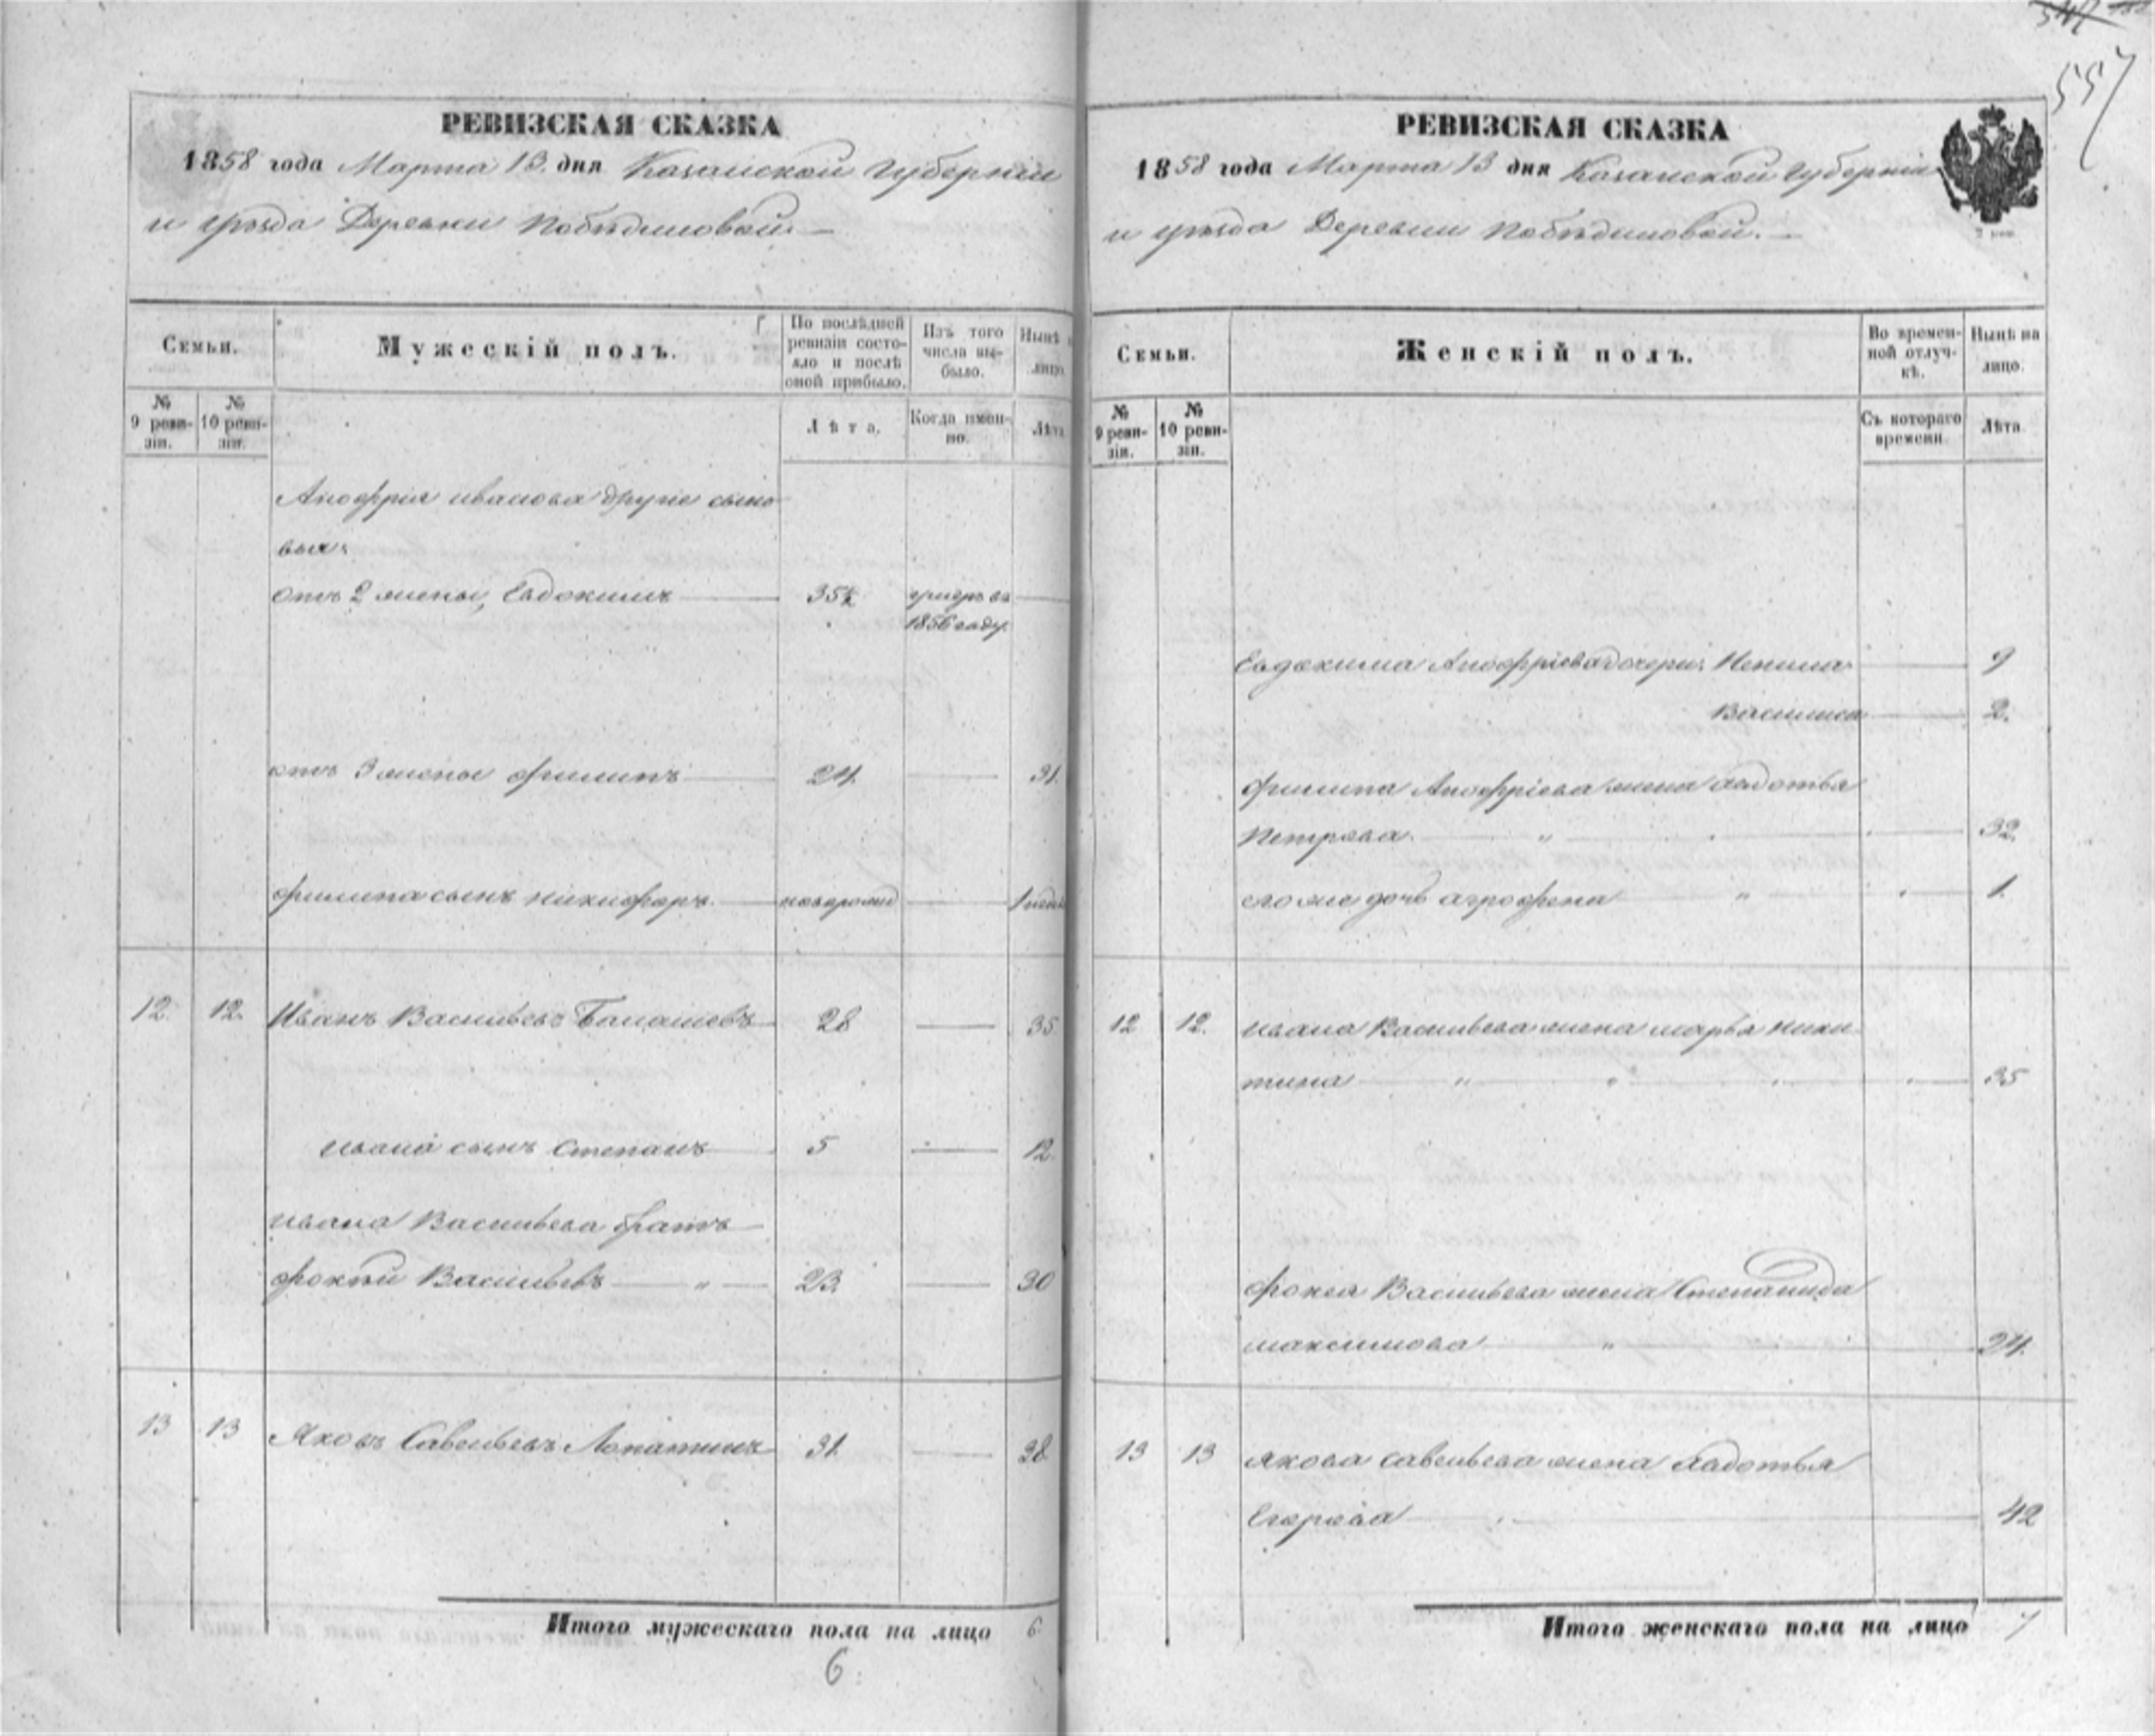 РЕВИЗСКАЯ СКАЗКА
1858 года Марта 13. дня Казанской Губернiи
и уѣзда Деревни Побѣдиловой.
Семьи.
Мужескiй полъ.
По послѣдней ревизiи состояло и послѣ оной прибыло.
Изъ того числа выбыло.
Нынѣ
лицо.
№ 9 ревизiи.
№ 10 ревизiи.
Лѣта.
Когда именно.
Лѣта
Аноффрiя иванова другiе сыно
вья:
Отъ 2 жены, Евдокимъ 35½ умеръ въ
1856 году.
отъ 3 жены филипъ 24. 31.
филипа сынъ никифоръ. новорожд 1
12. 12. Иванъ Васильевъ 28 35
ивана сынъ Степанъ 5 12.
ивана Васильева братъ
фокѣй Васильевъ „ 23. 30
13 13 Яковъ Савельевъ Лопатинъ 31. 38
Итого мужескаго пола на лицо 6.
6.
557
РЕВИЗСКАЯ СКАЗКА
1858 года Марта 13 дня Казанской Губернiи
и уѣзда Деревни Побѣдиловой.
Семьи.
Женскiй полъ.
Во временной отлучкѣ.
Нынѣ на лицо.
№ 9 ревизiи.
№ 10 ревизiи.
Съ котораго времени.
Лѣта.
Евдокима Аноффрiева дочери: 9
Василиса 2.
филипа Аноффрiева жена авдотья
Петрова. „ 32.
его же дочь агрофена „ 1.
12 12. ивана Васильева жена марья ники
тина „ „ 35
фокея Васильева жена Степанида
максимова „ 24.
13 13 якова савельева жена авдотья
Егорова 42
Итого женскаго пола на лицо 7